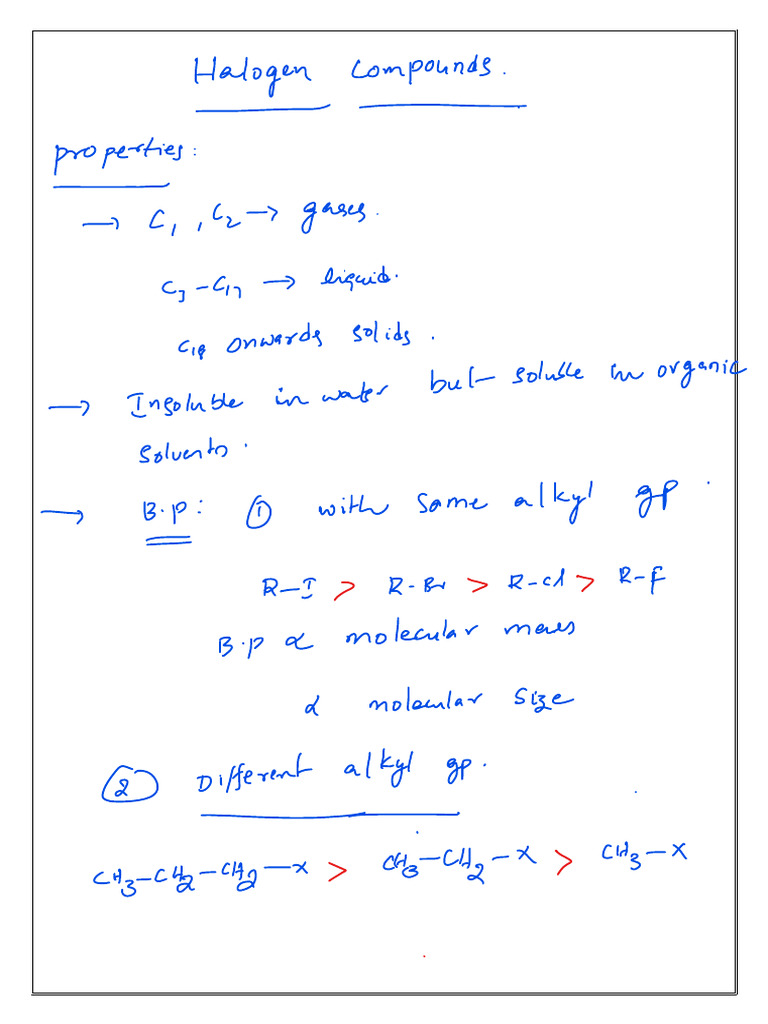 Halogen compounds.
properties:
→ C₁, C₂ → gases.
C₃ – C₁₇ → liquids.
C₁₈ onwards solids.
→ Insoluble in water but soluble in organic
solvents.
→ B.p: ① with same alkyl gp.
R–I > R-Br > R-Cl > R-F
B.p ∝ molecular mass
∝ molecular size
② Different alkyl gp.
CH₃–CH₂–CH₂–X > CH₃–CH₂–X > CH₃–X